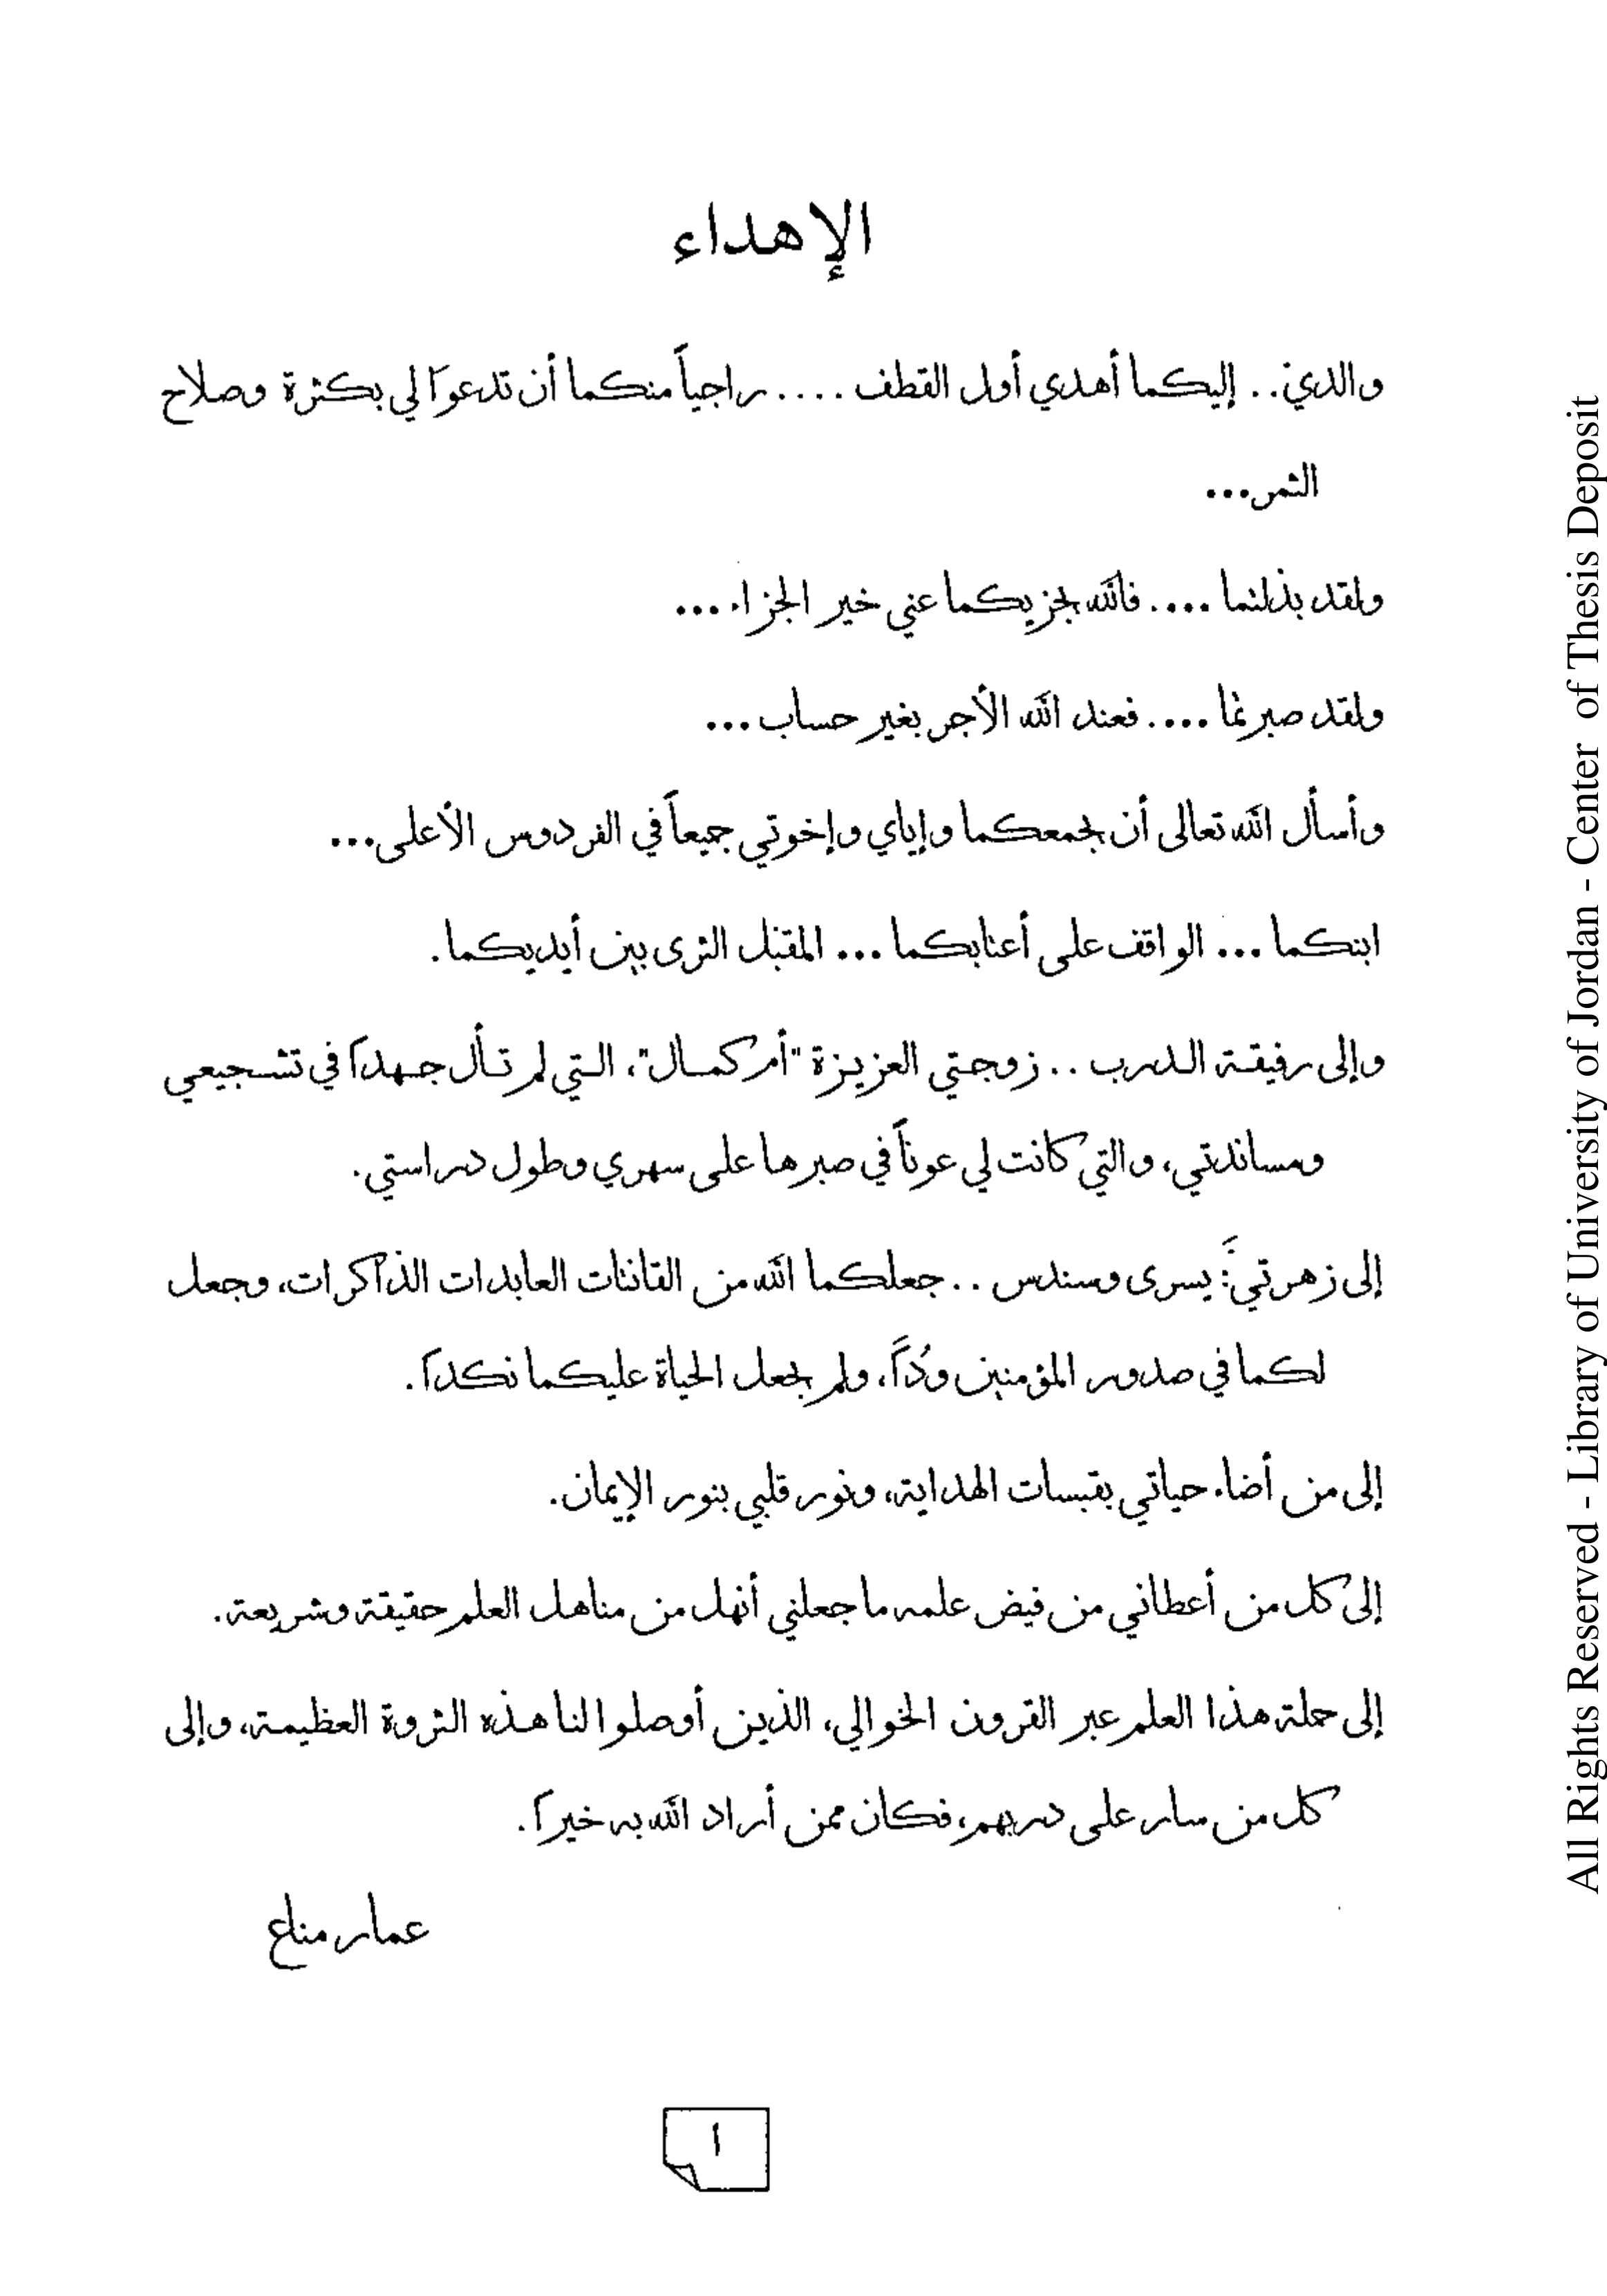 الإهداء
والدي.. إليكما أهدي أول القطف .... راجياً منكما أن تدعوَا لي بكثرة وصلاح
الثمر...
ولقد بذلتما .... فالله يجزيكما عني خير الجزاء ...
ولقد صبرتما .... فعند الله الأجر بغير حساب ...
وأسأل الله تعالى أن يجمعكما وإياي وإخوتي جميعاً في الفردوس الأعلى...
ابنكما ... الواقف على أعتابكما ... المقبّل الثرى بين أيديكما.
وإلى رفيقة الدرب .. زوجتي العزيزة "أم كمال"، التي لم تأل جهداً في تشجيعي
ومساندتي، والتي كانت لي عوناً في صبرها على سهري وطول دراستي.
إلى زهرتيَّ: يسرى وسندس .. جعلكما الله من القانتات العابدات الذاكرات، وجعل
لكما في صدور المؤمنين وُدَّاً، ولم يجعل الحياة عليكما نكداً.
إلى من أضاء حياتي بقبسات الهداية، ونور قلبي بنور الإيمان.
إلى كل من أعطاني من فيض علمه ما جعلني أنهل من مناهل العلم حقيقة وشريعة.
إلى حملة هذا العلم عبر القرون الخوالي، الذين أوصلوا لنا هذه الثروة العظيمة، وإلى
كل من سار على دربهم، فكان ممن أراد الله به خيراً.
عمار مناع
١
All Rights Reserved - Library of University of Jordan - Center of Thesis Deposit